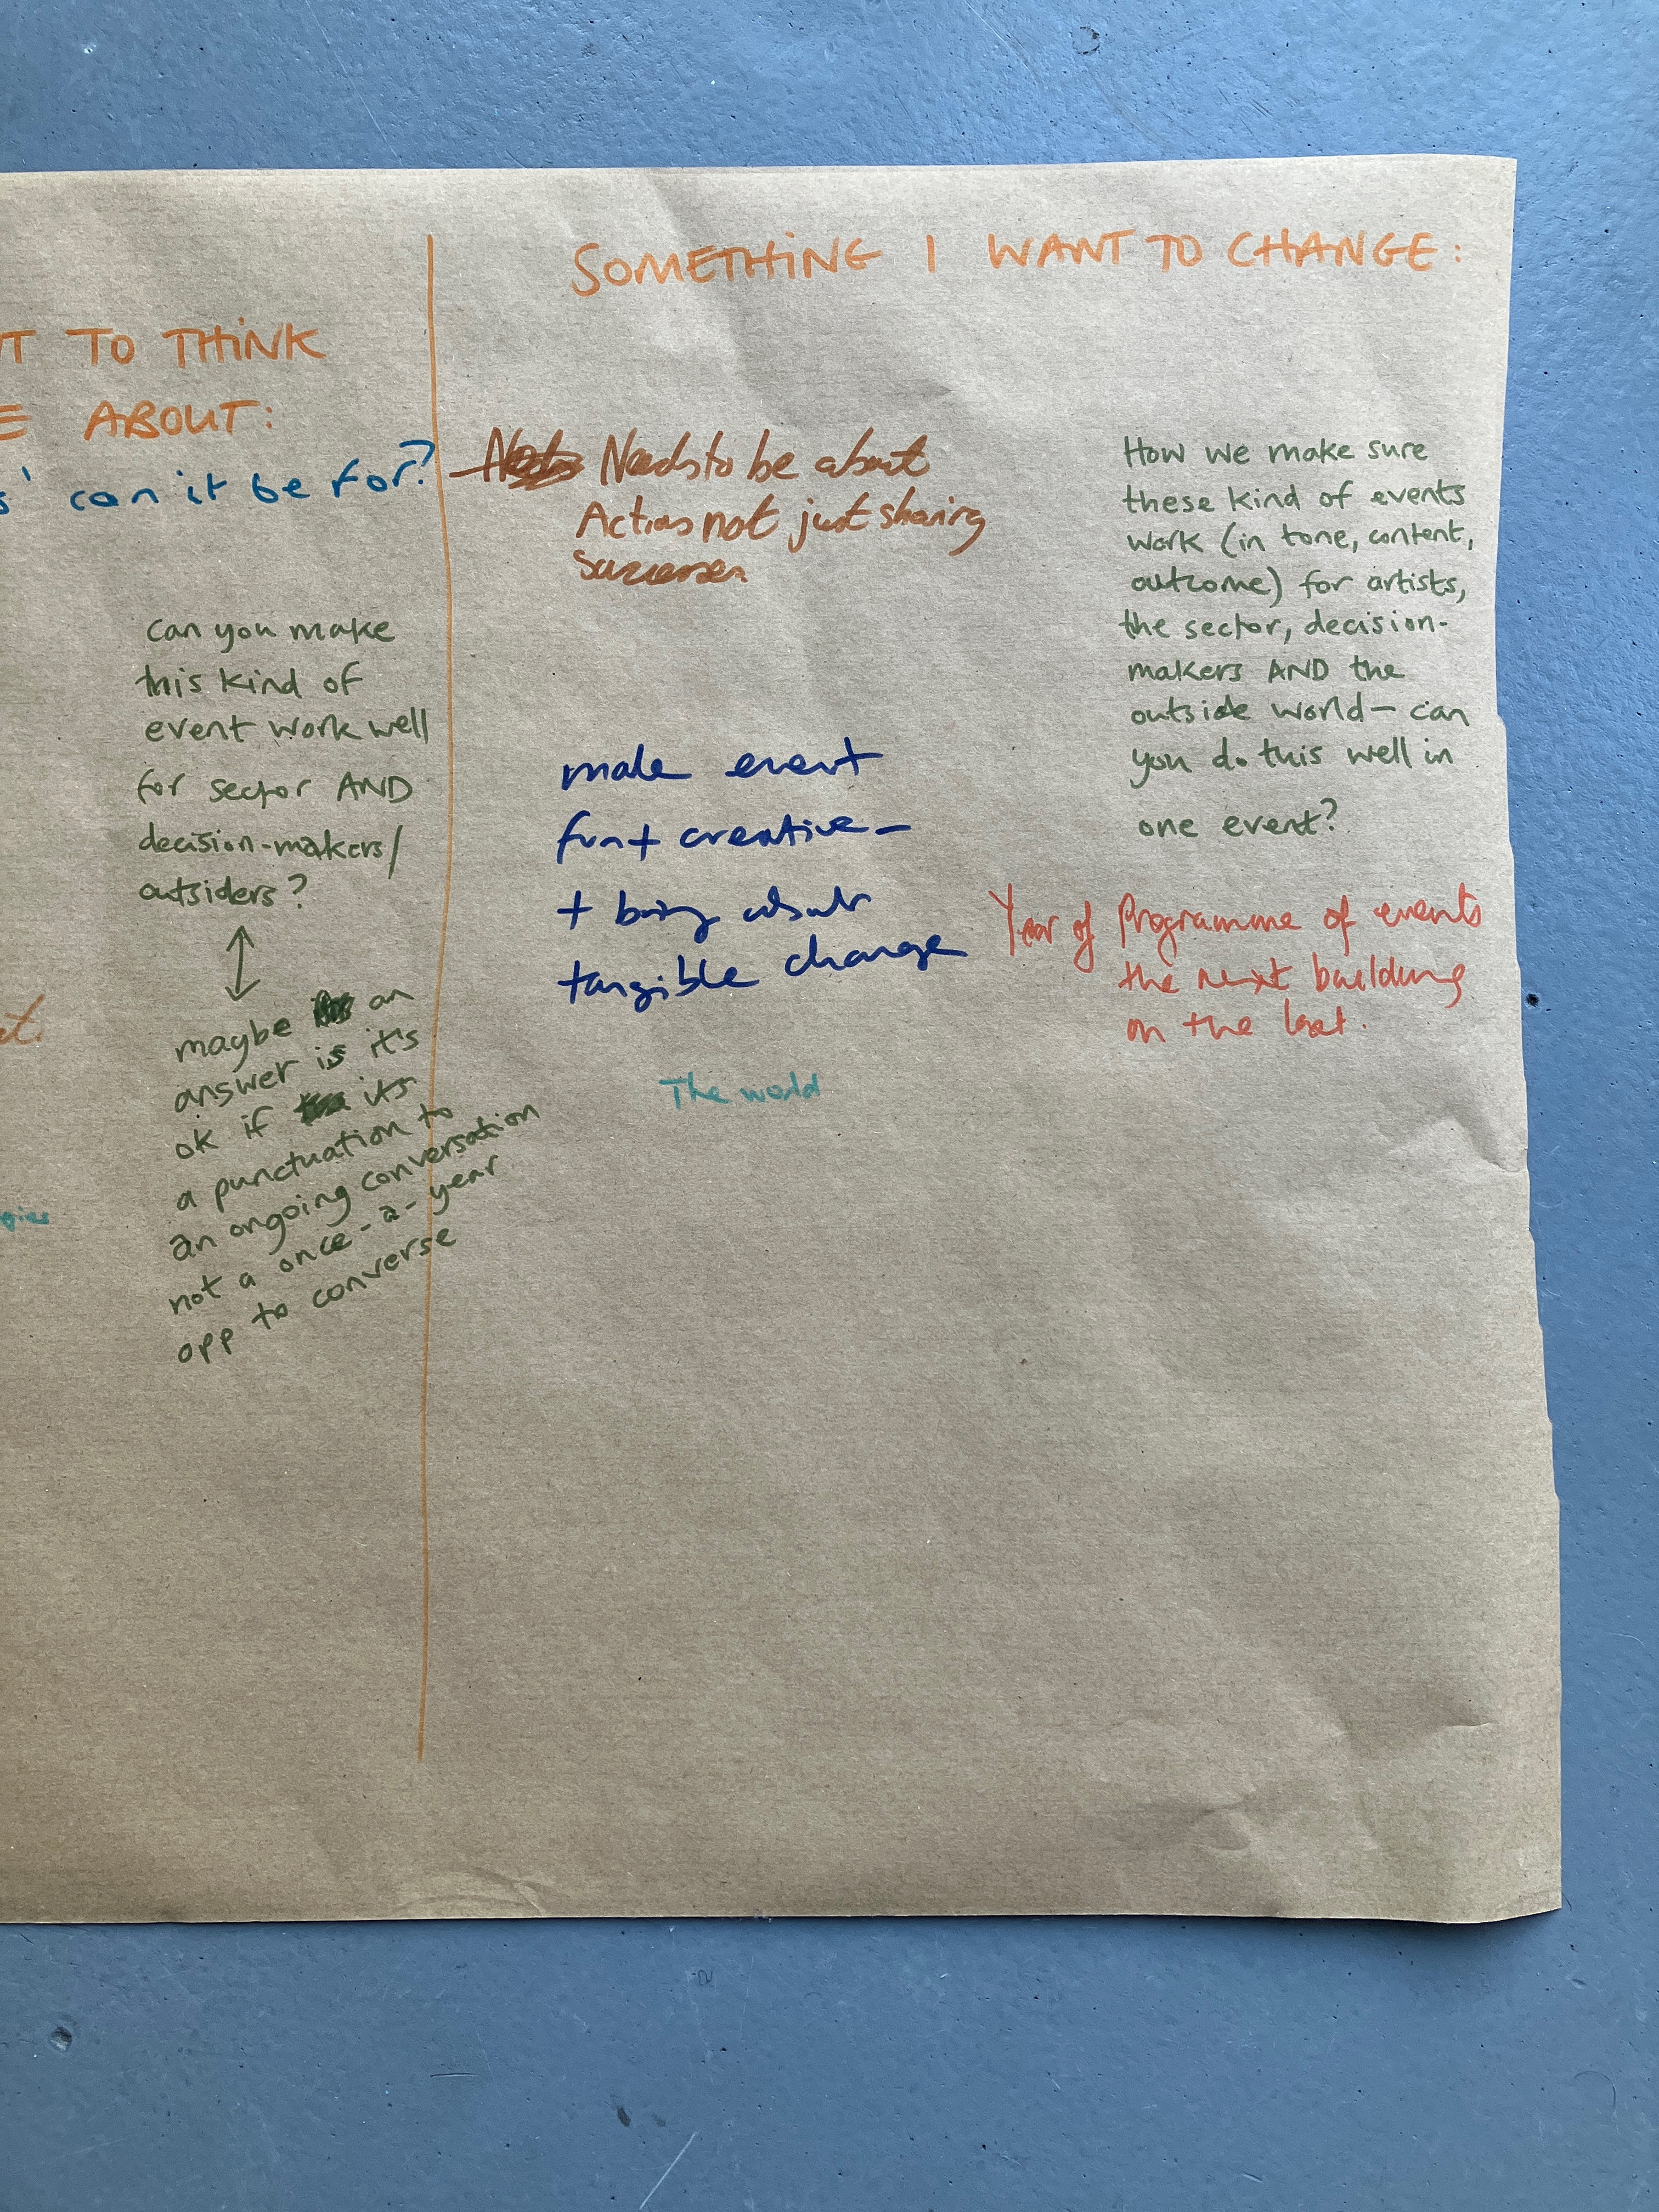 T TO THINK
E ABOUT:
s' can it be for?
can you make
this kind of
event work well
for sector AND
decision-makers/
outsiders?
maybe an
answer is it's
ok if its
a punctuation to
an ongoing conversation
not a once-a-year
opp to converse
SOMETHING I WANT TO CHANGE:
Needs to be about
Action not just sharing
Successes
make event
fun + creative –
+ being about
tangible change
The world
How we make sure
these kind of events
work (in tone, content,
outcome) for artists,
the sector, decision-
makers AND the
outside world – can
you do this well in
one event?
Year of Programme of events
the next building
on the last.